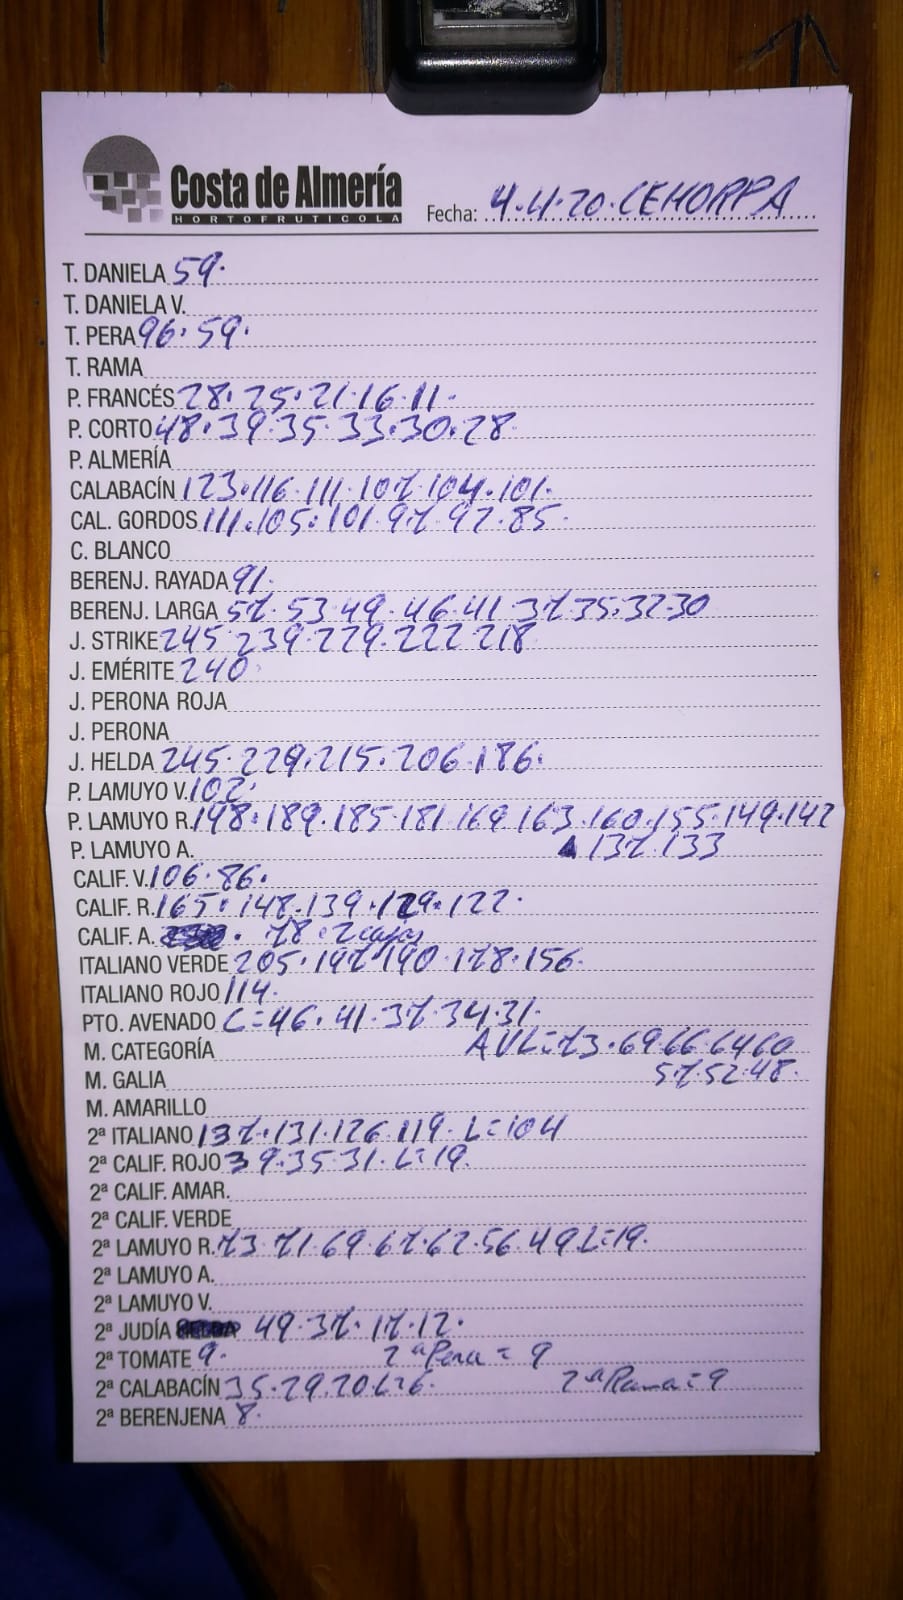 Costa de Almería
HORTOFRUTICOLA
Fecha: 4.11.20. CEHORPA
T. DANIELA 59.
T. DANIELA V.
T. PERA 96. 59.
T. RAMA
P. FRANCÉS 28. 25. 21. 16. 11.
P. CORTO 48. 39. 35. 33. 30. 28
P. ALMERÍA
CALABACÍN 123. 116. 111. 107. 104. 101.
CAL. GORDOS 111. 105. 101. 97. 92. 85.
C. BLANCO
BERENJ. RAYADA 91.
BERENJ. LARGA 57. 53. 49. 46. 41. 37. 35. 32. 30
J. STRIKE 245. 239. 229. 222. 218
J. EMÉRITE 240
J. PERONA ROJA
J. PERONA
J. HELDA 245. 229. 215. 206. 186.
P. LAMUYO V. 102.
P. LAMUYO R. 198. 189. 185. 181. 169. 163. 160. 155. 149. 142
P. LAMUYO A. ▲ 137. 133
CALIF. V. 106. 86.
CALIF. R. 165. 148. 139. 129. 122.
CALIF. A. 78. 2 cajas
ITALIANO VERDE 205. 197. 190. 178. 156.
ITALIANO ROJO 114.
PTO. AVENADO C=46. 41. 37. 34. 31.
M. CATEGORÍA AVL=73. 69. 66. 64. 60
M. GALIA 57. 52. 48.
M. AMARILLO
2ª ITALIANO 137. 131. 126. 119. L=104
2ª CALIF. ROJO 39. 35. 31. L=19.
2ª CALIF. AMAR.
2ª CALIF. VERDE
2ª LAMUYO R. 73. 71. 69. 67. 62. 56. 49. L=19.
2ª LAMUYO A.
2ª LAMUYO V.
2ª JUDÍA 49. 37. 17. 12.
2ª TOMATE 9. 2ª Pera = 9
2ª CALABACÍN 35. 29. 20. L=6. 2ª Rama = 9
2ª BERENJENA 8.